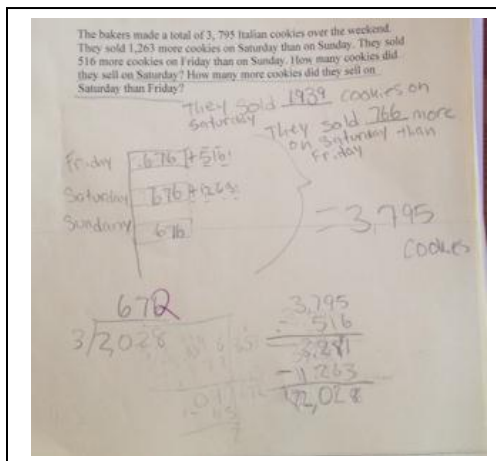 The bakers made a total of 3, 795 Italian cookies over the weekend.
They sold 1,263 more cookies on Saturday than on Sunday. They sold
516 more cookies on Friday than on Sunday. How many cookies did
they sell on Saturday? How many more cookies did they sell on
Saturday than Friday?
They sold 1939 cookies on
Saturday
They sold 766 more
on Saturday than
Friday
Friday 676 +516
Saturday 676 +1263
Sunday 676
=3,795
cookies
3/2,028
3,795
- 516
- 1263
2,028